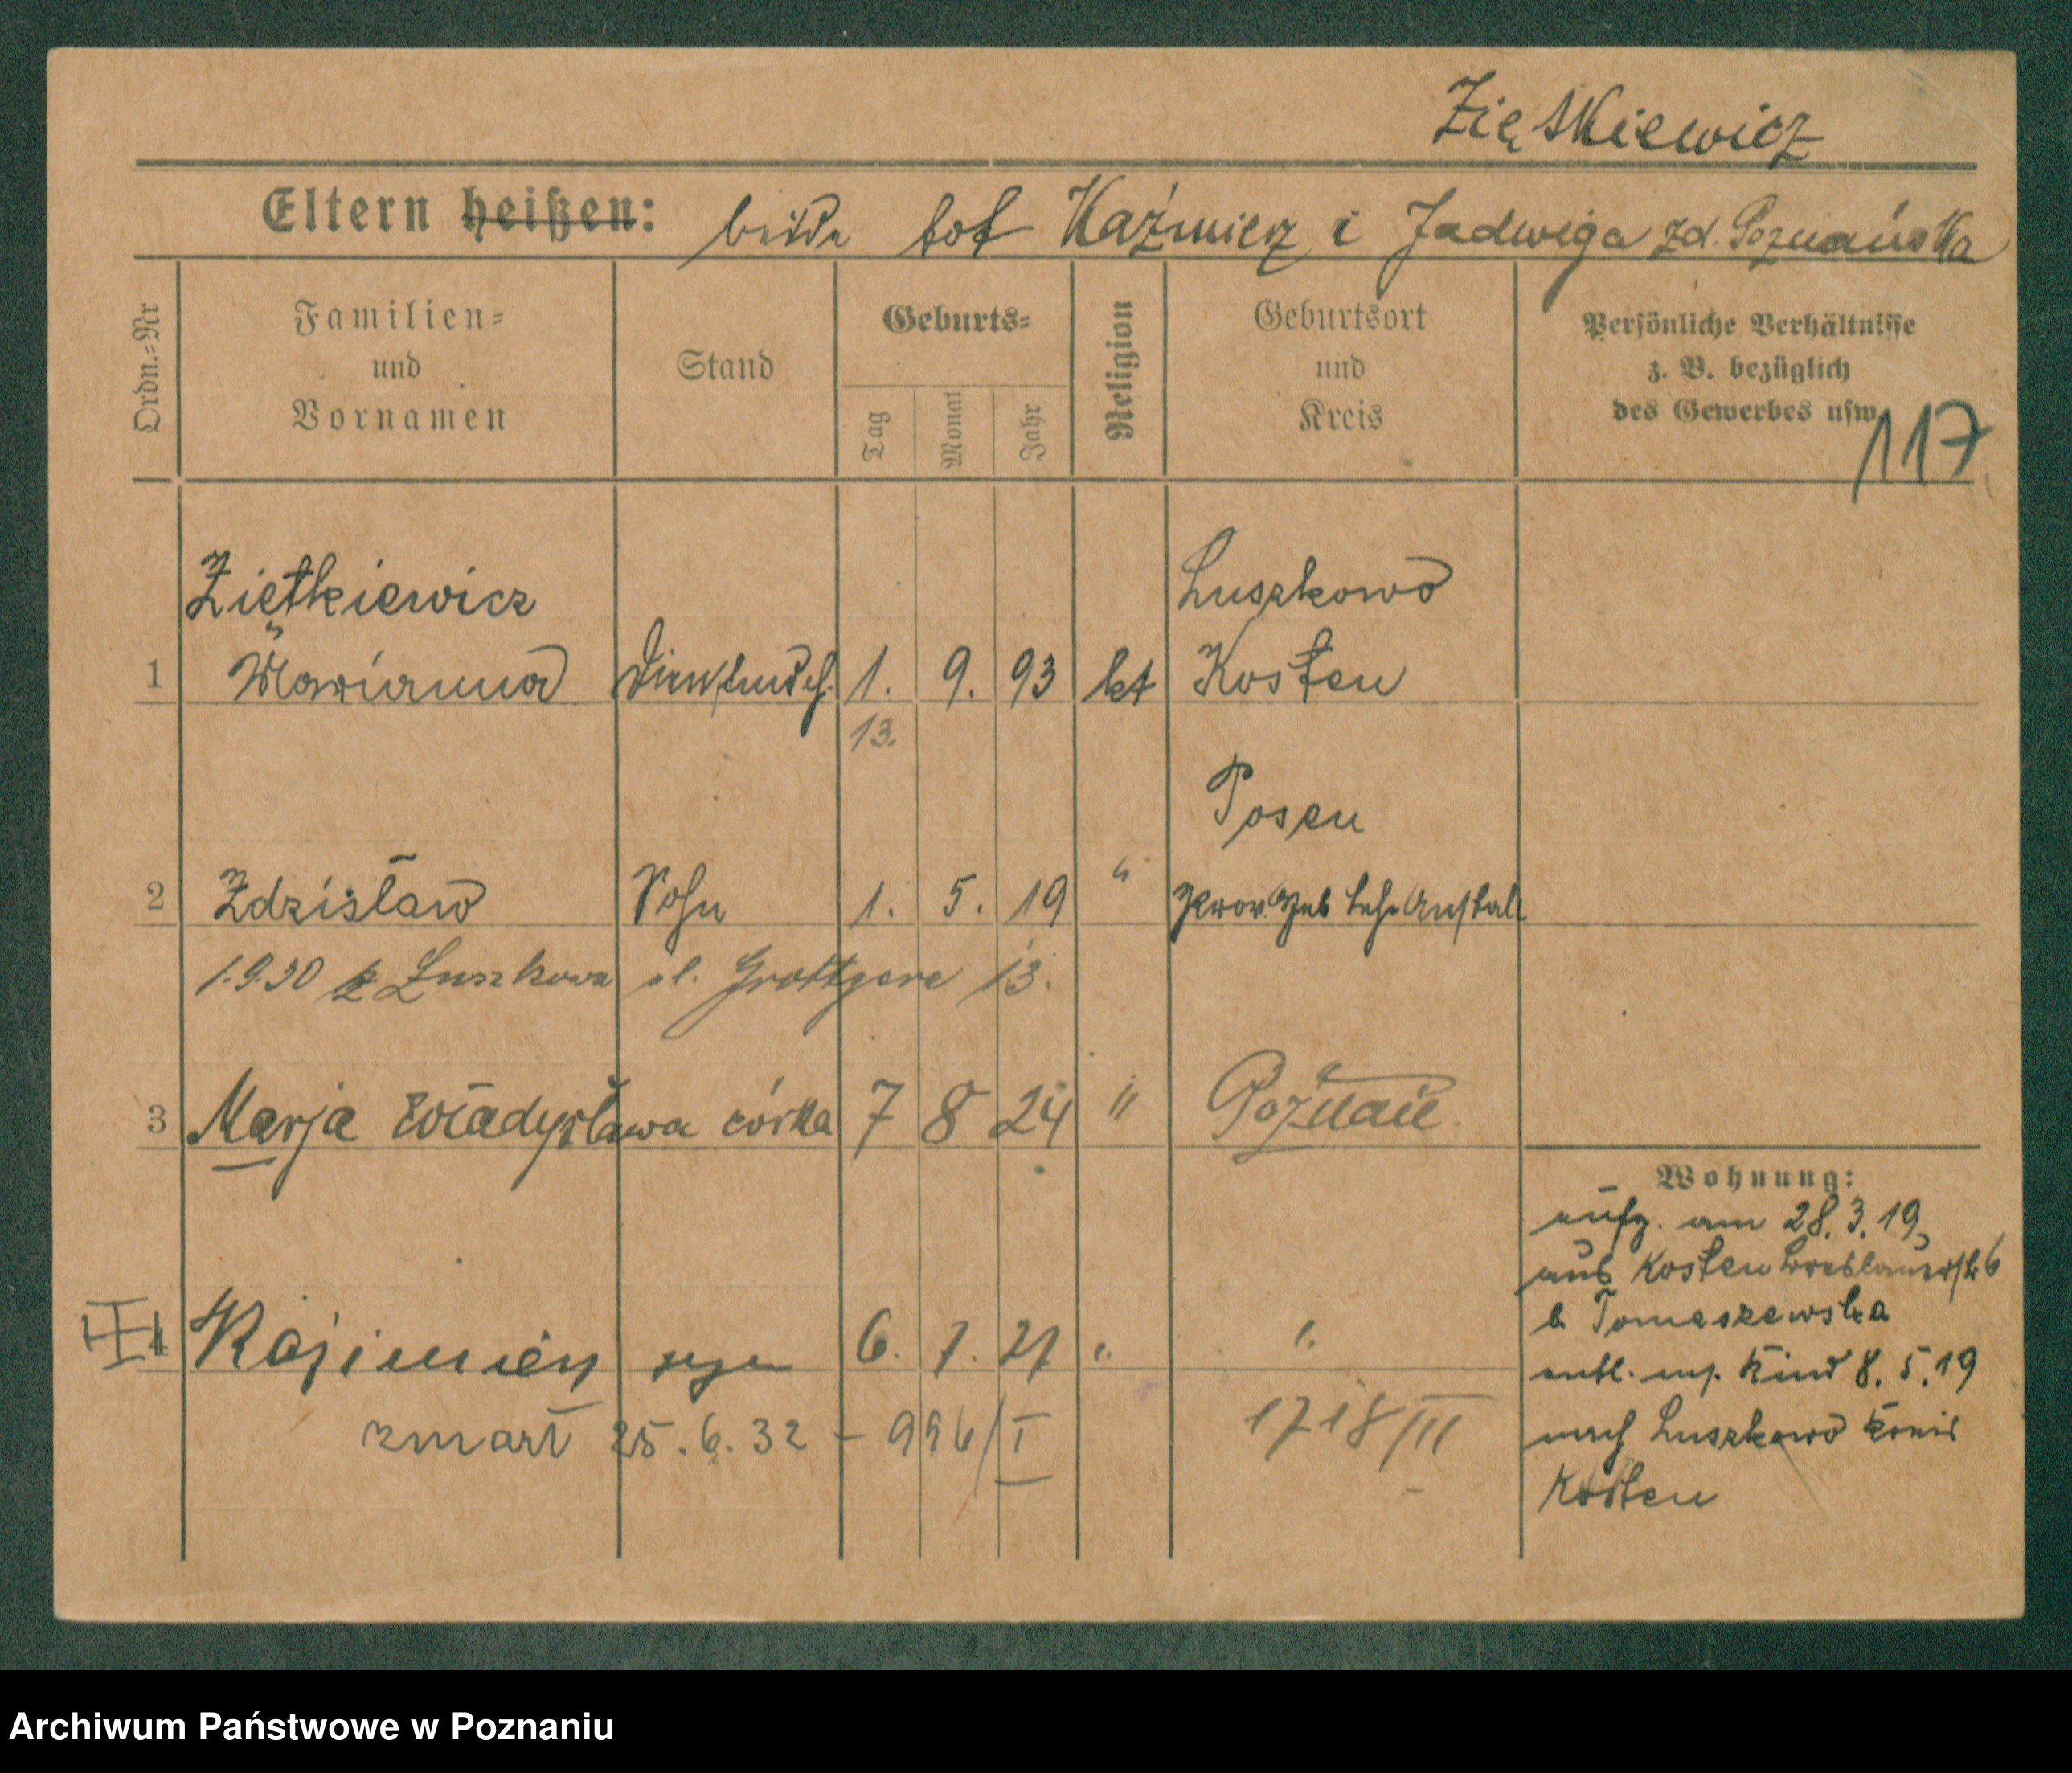 Ziętkiewicz
Eltern heißen: beide tot Kaźmierz i Jadwiga zd. Poznańska
Ordn.=Nr
Familien=
und
Vornamen
Stand
Geburts=
Tag
Monat
Jahr
Religion
Geburtsort
und
Kreis
Persönliche Verhältnisse
z. B. bezüglich
des Gewerbes usw.
117
Ziętkiewicz Luszkowo
1 Marianna 1. 9. 93 kt Kosten
13.
Posen
2 Zdzisław Sohn 1. 5. 19 " Prov. Heb Lehr Anstalt
1.9.30 z Luszkowa ul. Grottgera 13.
3 Marja Władysława córka 7 8 24 " Poznań
4 Kazimierz syn 6. 7. 27 " "
zmarł 25.6.32 - 996/I 1718/III
Wohnung:
aufg. am 28.3.19
aus Kosten Breslauerstr 6
b Tomaszewska
entl. m. Kind 8.5.19
nach Luszkowo Kreis
Kosten
Archiwum Państwowe w Poznaniu